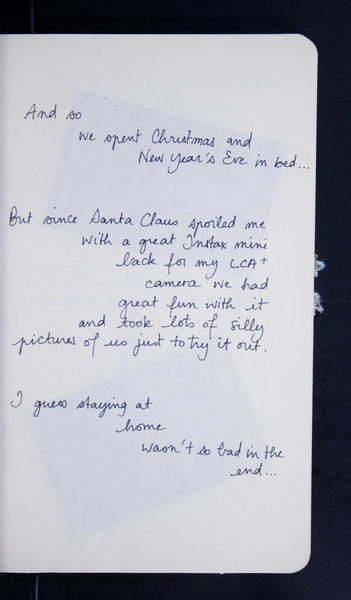 And so
we spent Christmas and
New Year's Eve in bed...
But since Santa Claus spoiled me
with a great Instax mini
back for my LCA+
camera we had
great fun with it
and took lots of silly
pictures of us just to try it out.
I guess staying at
home
wasn't so bad in the
end...